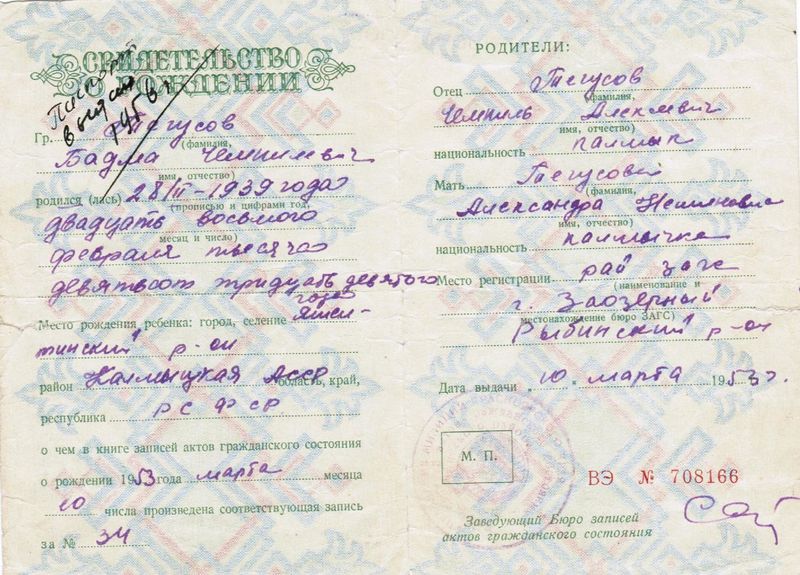 СВИДЕТЕЛЬСТВО
О РОЖДЕНИИ
Паспорт
выдан
Гр. Тегусов
(фамилия,
Бадма Чемпилевич
имя, отчество)
родился (лась) 28/II-1939 года
(прописью и цифрами год,
двадцать восьмого
месяц и число)
февраля тысяча
девятьсот тридцать девятого
года
Место рождения ребенка: город, селение
тинский р-он
район Калмыцкая АССР область, край,
республика РСФСР
о чем в книге записей актов гражданского состояния
о рождении 1953 года марта месяца
10 числа произведена соответствующая запись
за № 34
РОДИТЕЛИ:
Отец Тегусов
(фамилия,
Чемпиль
имя, отчество)
национальность калмык
Мать Тегусова
(фамилия,
Александра
имя, отчество)
национальность калмычка
Место регистрации рай загс
(наименование и
г. Заозерный
местонахождение бюро ЗАГС)
Рыбинский р-он
Дата выдачи „10" марта 1953 г.
М. П.
ВЭ № 708166
Заведующий Бюро записей
актов гражданского состояния